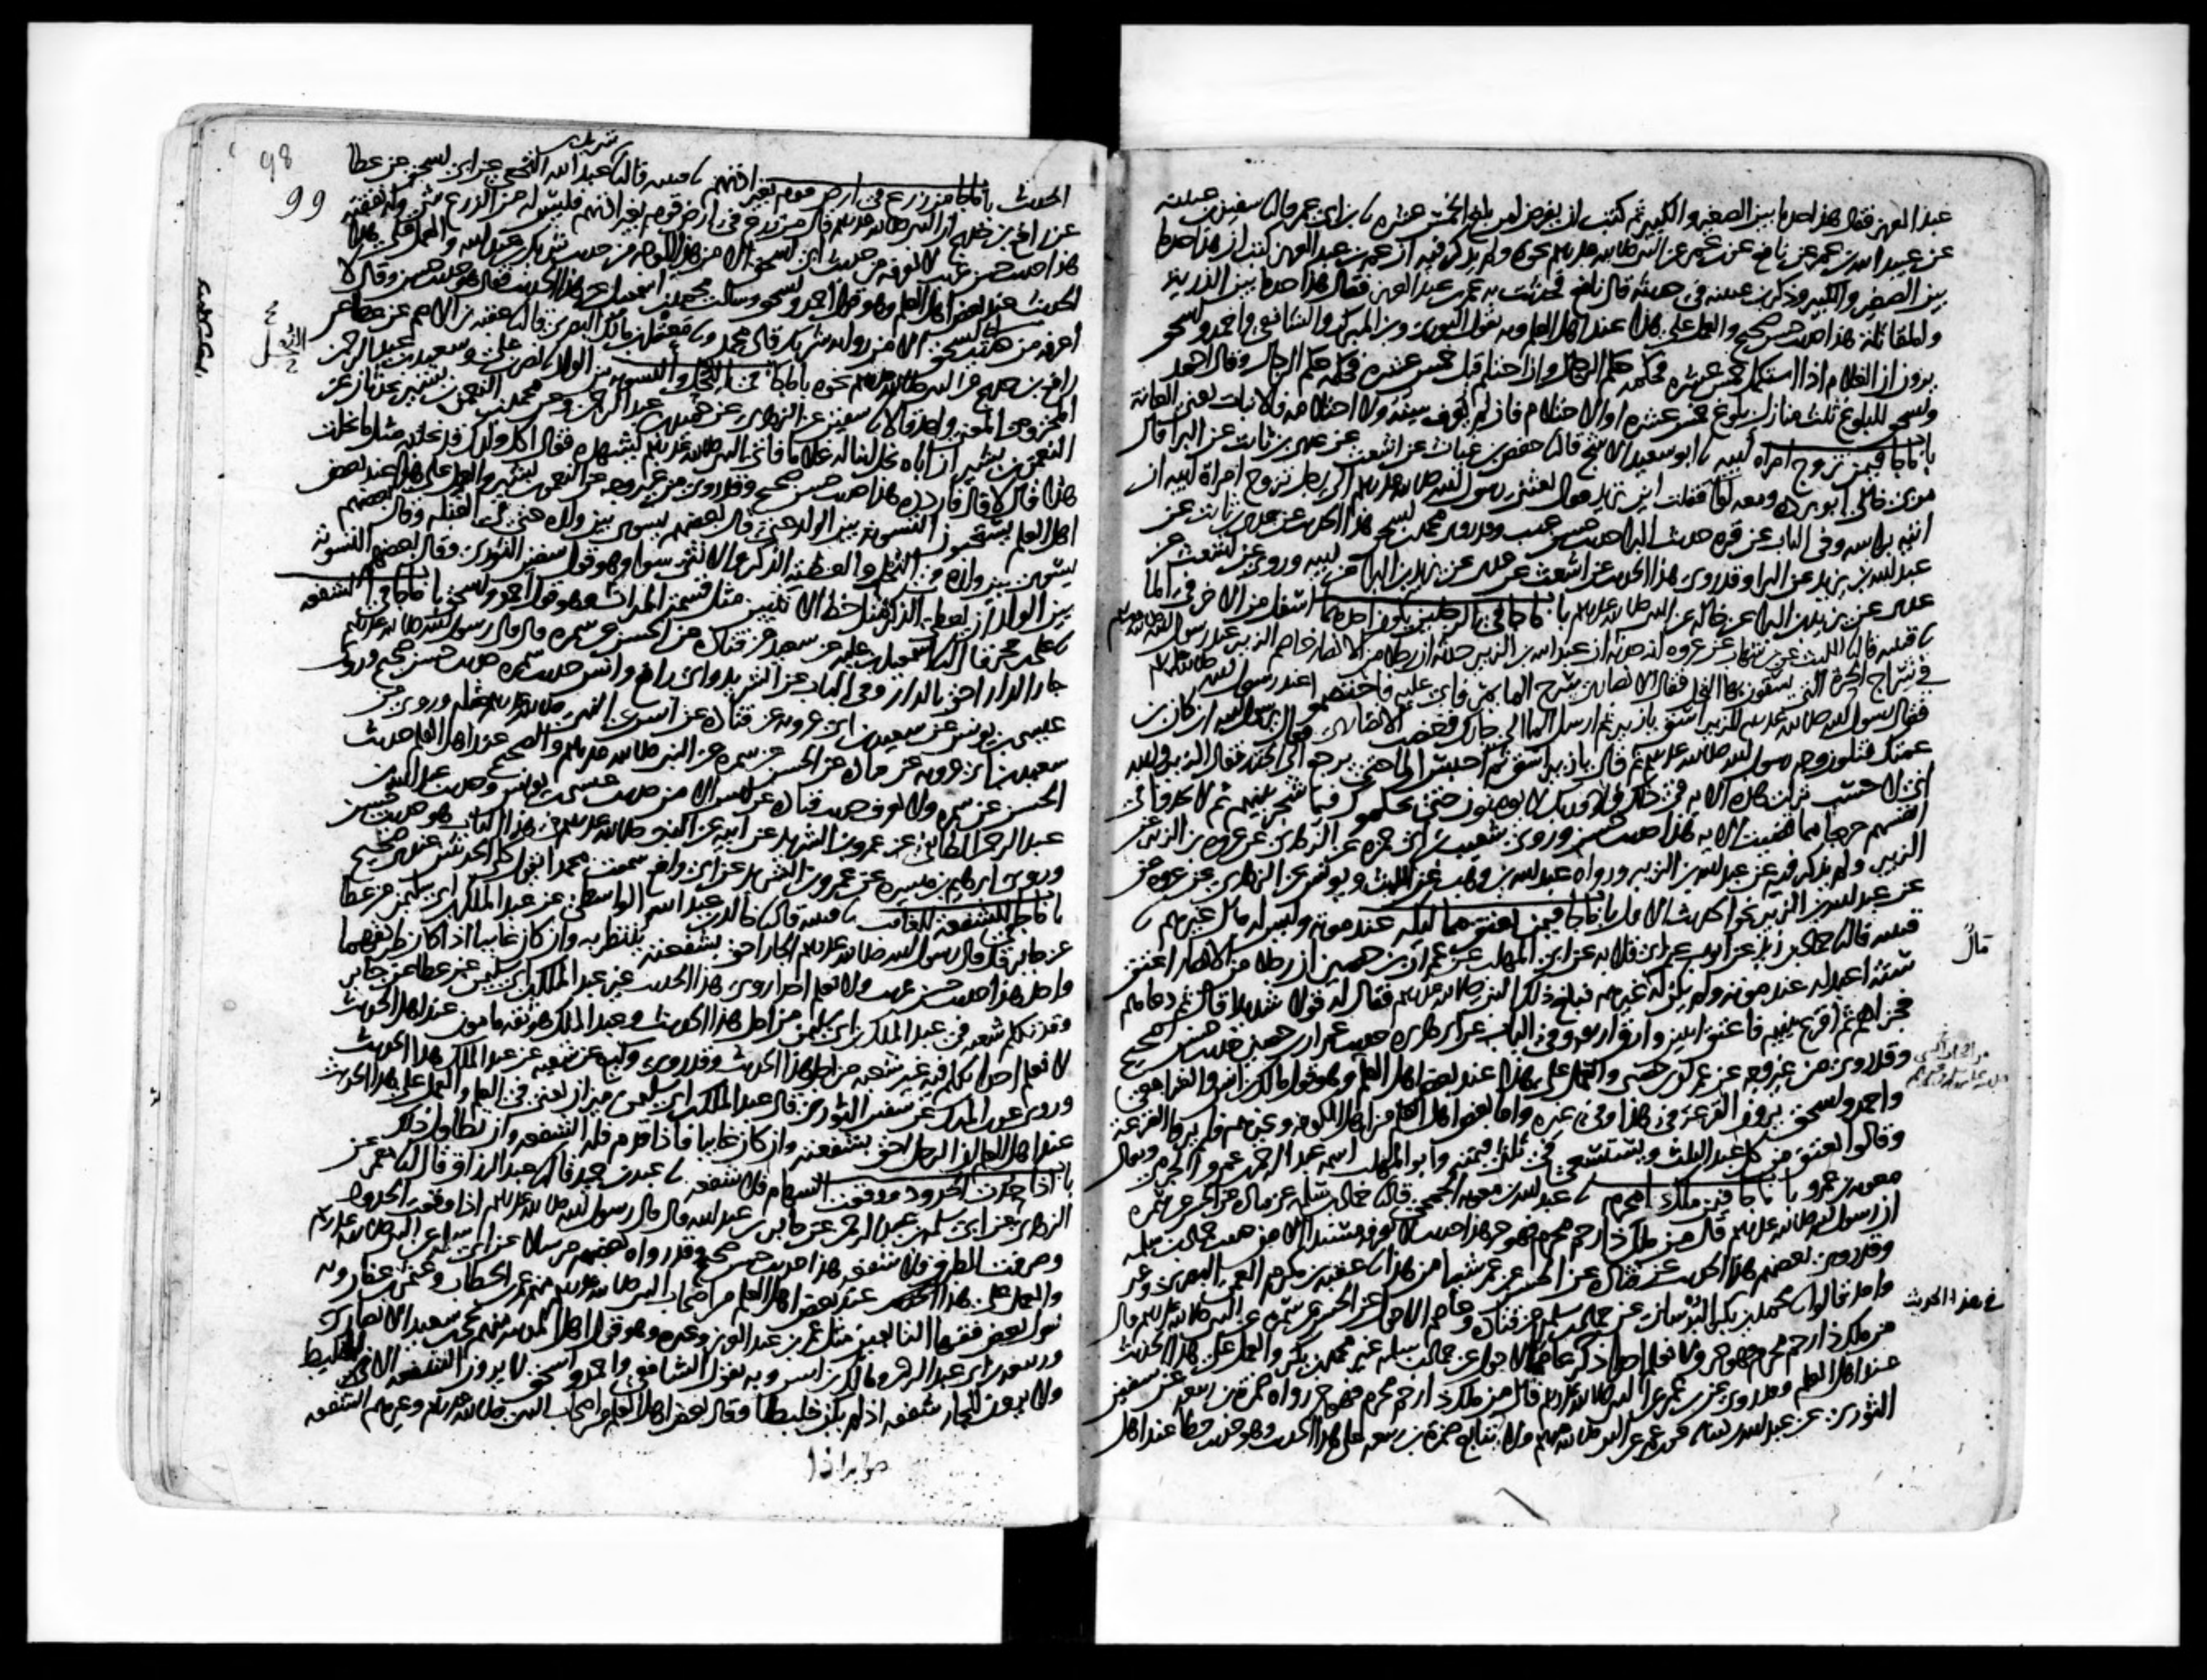 عبد العزيز فقال هذا حد ما بين الصغير والكبير ثم كتب ان يفرض لمن بلغ الخمس عشرة نا ابن ابي عمر قال نا سفين بن عيينة
عن عبيد الله بن عمر عن نافع عن ابن عمر عن النبي صلى الله عليه وسلم نحوه ولم يذكر فيه ان عمر بن عبد العزيز كتب ان هذا حد ما
بين الصغير والكبير وذكر ابن عيينة في حديثه قال نافع فحدثت به عمر بن عبد العزيز فقال هذا حد ما بين الذرية
والمقاتلة هذا حديث حسن صحيح والعمل على هذا عند اهل العلم وبه يقول الثوري وابن المبرك والشافعي واحمد واسحق
يرون ان الغلام اذا استكمل خمس عشرة فحكمه حكم الرجال وان احتلم قبل خمس عشرة فحكمه حكم الرجال وقال احمد
واسحق للبلوغ ثلث منازل بلوغ خمس عشرة او الاحتلام فان لم يعرف سنه ولا احتلامه فالانبات يعني العانة
باب ما جا فيمن تزوج امراة ابيه نا ابو سعيد الاشج قال نا حفص بن غياث عن اشعث عن عدي بن ثابت عن البرا قال
مر بي خالي ابو بردة ومعه لوا فقلت اين تريد فقال بعثني رسول الله صلى الله عليه وسلم الى رجل تزوج امراة ابيه ان
اتيه براسه وفي الباب عن قرة حديث البرا حديث حسن غريب وقد روى محمد بن اسحق هذا الحديث عن عدي بن ثابت عن
عبد الله بن يزيد عن البرا وقد روي هذا الحديث عن اشعث عن عدي عن يزيد بن البرا عن ابيه وروي عن اشعث عن
عدي عن يزيد بن البرا عن خاله عن النبي صلى الله عليه وسلم باب ما جا في الرجلين يكون احدهما اسفل من الاخر في الما
نا قتيبة قال نا الليث عن ابن شهاب عن عروة انه حدثه ان عبد الله بن الزبير حدثه ان رجلا من الانصار خاصم الزبير عند رسول الله صلى الله عليه وسلم
في شراج الحرة التي يسقون بها النخل فقال الانصاري سرح الما يمر فابى عليه فاختصموا عند رسول الله صلى الله عليه وسلم
فقال رسول الله صلى الله عليه وسلم للزبير اسق يا زبير ثم ارسل الما الى جارك فغضب الانصاري فقال يا رسول الله ان كان ابن
عمتك فتلون وجه رسول الله صلى الله عليه وسلم ثم قال يا زبير اسق ثم احبس الما حتى يرجع الى الجدر فقال الزبير والله
اني لاحسب نزلت هذه الاية في ذلك فلا وربك لا يومنون حتى يحكموك فيما شجر بينهم ثم لا يجدوا في
انفسهم حرجا مما قضيت الاية هذا حديث حسن وروى شعيب بن ابي حمزة عن الزهري عن عروة بن الزبير عن
الزبير ولم يذكر فيه عن عبد الله بن الزبير ورواه عبد الله بن وهب عن الليث ويونس عن الزهري عن عروة عن
عن عبد الله بن الزبير نحو الحديث الاول باب ما جا فيمن يعتق مماليكه عند موته وليس له مال غيرهم نا
قتيبة قال نا حماد بن زيد عن ايوب عن ابي قلابة عن ابي المهلب عن عمران بن حصين ان رجلا من الانصار اعتق
ستة اعبد له عند موته ولم يكن له غيرهم فبلغ ذلك النبي صلى الله عليه وسلم فقال له قولا شديدا قال ثم دعاهم
فجزاهم ثم اقرع بينهم فاعتق اثنين وارق اربعة وفي الباب عن ابي هريرة حديث عمران بن حصين حديث حسن صحيح
وقد روي من غير وجه عن عمران بن حصين والعمل على هذا عند بعض اهل العلم وهو قول مالك بن انس والشافعي
واحمد واسحق يرون القرعة في هذا وفي غيره واما بعض اهل العلم من اهل الكوفة وغيرهم فلم يروا القرعة
وقالوا يعتق من كل عبد الثلث ويستسعى في ثلثي قيمته وابو المهلب اسمه عبد الرحمن بن عمرو الجرمي ويقال
معوية بن عمرو باب ما جا فيمن ملك ذا محرم نا عبد الله بن معوية الجمحي قال نا حماد بن سلمة عن قتادة عن الحسن عن سمرة
ان رسول الله صلى الله عليه وسلم قال من ملك ذا رحم محرم فهو حر هذا حديث لا نعرفه مسندا الا من حديث حماد بن سلمة
وقد روى بعضهم هذا الحديث عن قتادة عن الحسن عن عمر شيا من هذا نا عقبة بن مكرم العمي البصري وغير
واحد قالوا نا محمد بن بكر البرساني عن حماد بن سلمة عن قتادة وعاصم الاحول عن الحسن عن سمرة عن النبي صلى الله عليه وسلم قال
من ملك ذا رحم محرم فهو حر ولا نعلم احدا ذكر عاصما الاحول عن حماد بن سلمة غير محمد بن بكر والعمل على هذا الحديث
عند اهل العلم وقد روي عن ابن عمر عن النبي صلى الله عليه وسلم قال من ملك ذا رحم محرم فهو حر رواه ضمرة بن ربيعة عن سفين
الثوري عن عبد الله بن دينار عن ابن عمر عن النبي صلى الله عليه وسلم ولا يتابع ضمرة بن ربيعة على هذا الحديث وهو حديث خطا عند اهل
قال
في هذا الحديث
98
99
شريك بن
الحديث باب ما جا من زرع في ارض قوم بغير اذنهم نا قتيبة قال نا عبد الله النخعي عن ابي اسحق عن عطا
عن رافع بن خديج ان النبي صلى الله عليه وسلم قال من زرع في ارض قوم بغير اذنهم فليس له من الزرع شي وله نفقته
هذا حديث حسن غريب لا نعرفه من حديث ابي اسحق الا من هذا الوجه من حديث شريك بن عبد الله والعمل على هذا
الحديث عند بعض اهل العلم وهو قول احمد واسحق وسالت محمد بن اسمعيل عن هذا الحديث فقال هو حديث حسن وقال لا
اعرفه من حديث ابي اسحق الا من رواية شريك قال محمد ونا معقل بن مالك البصري قال نا عقبة بن الاصم عن عطا عن
رافع بن خديج عن النبي صلى الله عليه وسلم نحوه باب ما جا في النحل والتسوية بين الولد نا نصر بن علي وسعيد بن عبد الرحمن
المخزومي المعنى واحد قالا نا سفين عن الزهري عن حميد بن عبد الرحمن وعن محمد بن النعمن بن بشير يحدثان عن
النعمن بن بشير ان اباه نحل ابنا له غلاما فاتى النبي صلى الله عليه وسلم يشهده فقال اكل ولدك قد نحلته مثل ما نحلت
هذا قال لا قال فاردده هذا حديث حسن صحيح وقد روي من غير وجه عن النعمن بن بشير والعمل على هذا عند بعض
اهل العلم يستحبون التسوية بين الولد حتى قال بعضهم يسوي بين ولده حتى في القبلة وقال بعضهم
يسوي بين ولده في النحل والعطية الذكر والانثى سوا وهو قول سفين الثوري وقال بعضهم التسوية
بين الولد ان يعطى الذكر مثل حظ الانثيين مثل قسمة الميراث وهو قول احمد واسحق باب ما جا في الشفعة
نا علي بن حجر قال نا اسمعيل بن علية عن سعيد عن قتادة عن الحسن عن سمرة قال قال رسول الله صلى الله عليه وسلم
جار الدار احق بالدار وفي الباب عن الشريد وابي رافع وانس حديث سمرة حديث حسن صحيح وروى
عيسى بن يونس عن سعيد بن ابي عروبة عن قتادة عن انس عن النبي صلى الله عليه وسلم مثله وروي عن
سعيد بن ابي عروبة عن قتادة عن الحسن عن سمرة عن النبي صلى الله عليه وسلم والصحيح عند اهل العلم حديث
الحسن عن سمرة ولا نعرف حديث قتادة عن انس الا من حديث عيسى بن يونس وحديث عبد الله بن
عبد الرحمن الطائفي عن عمرو بن الشريد عن ابيه عن النبي صلى الله عليه وسلم في هذا الباب هو حديث حسن
وروى ابرهيم بن ميسرة عن عمرو بن الشريد عن ابي رافع سمعت محمدا يقول كلا الحديثين عندي صحيح
باب ما جا في الشفعة للغائب نا قتيبة قال نا خالد بن عبد الله الواسطي عن عبد الملك بن ابي سليمن عن عطا
عن جابر قال قال رسول الله صلى الله عليه وسلم الجار احق بشفعته ينتظر به وان كان غايبا اذا كان طريقهما
واحدا هذا حديث حسن غريب ولا نعلم احدا روى هذا الحديث غير عبد الملك بن ابي سليمن عن عطا عن جابر
وقد تكلم شعبة في عبد الملك بن ابي سليمن من اجل هذا الحديث وعبد الملك هو ثقة مامون عند اهل الحديث
لا نعلم احدا تكلم فيه غير شعبة من اجل هذا الحديث وقد روى وكيع عن شعبة عن عبد الملك هذا الحديث
وروي عن ابن المبرك عن سفين الثوري قال عبد الملك بن ابي سليمن ميزان يعني في العلم والعمل على هذا الحديث
عند اهل العلم ان الرجل احق بشفعته وان كان غايبا فاذا قدم فله الشفعة وان تطاول ذلك
باب اذا حدت الحدود ووقعت السهام فلا شفعة نا عبد بن حميد قال نا عبد الرزاق قال نا معمر عن
الزهري عن ابي سلمة بن عبد الرحمن عن جابر بن عبد الله قال قال رسول الله صلى الله عليه وسلم اذا وقعت الحدود
وصرفت الطرق فلا شفعة هذا حديث حسن صحيح وقد رواه بعضهم مرسلا عن ابي سلمة عن النبي صلى الله عليه وسلم
والعمل على هذا الحديث عند بعض اهل العلم من اصحاب النبي صلى الله عليه وسلم منهم عمر بن الخطاب وعثمن بن عفان وبه
يقول بعض فقها التابعين مثل عمر بن عبد العزيز وغيره وهو قول اهل المدينة منهم يحيى بن سعيد الانصاري
وربيعة بن ابي عبد الرحمن ومالك بن انس وبه يقول الشافعي واحمد واسحق لا يرون الشفعة الا للخليط
ولا يرون للجار شفعة اذا لم يكن خليطا وقال بعض اهل العلم من اصحاب النبي صلى الله عليه وسلم وغيرهم الشفعة